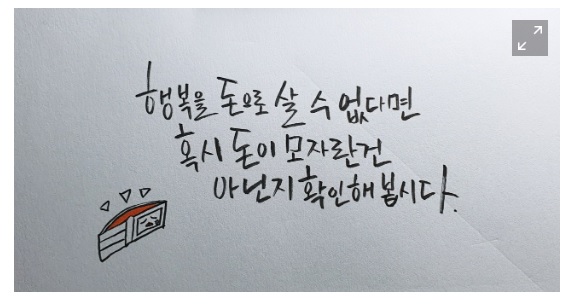 행복을 돈으로 살 수 없다면
혹시 돈이 모자란건
아닌지 확인해 봅시다.